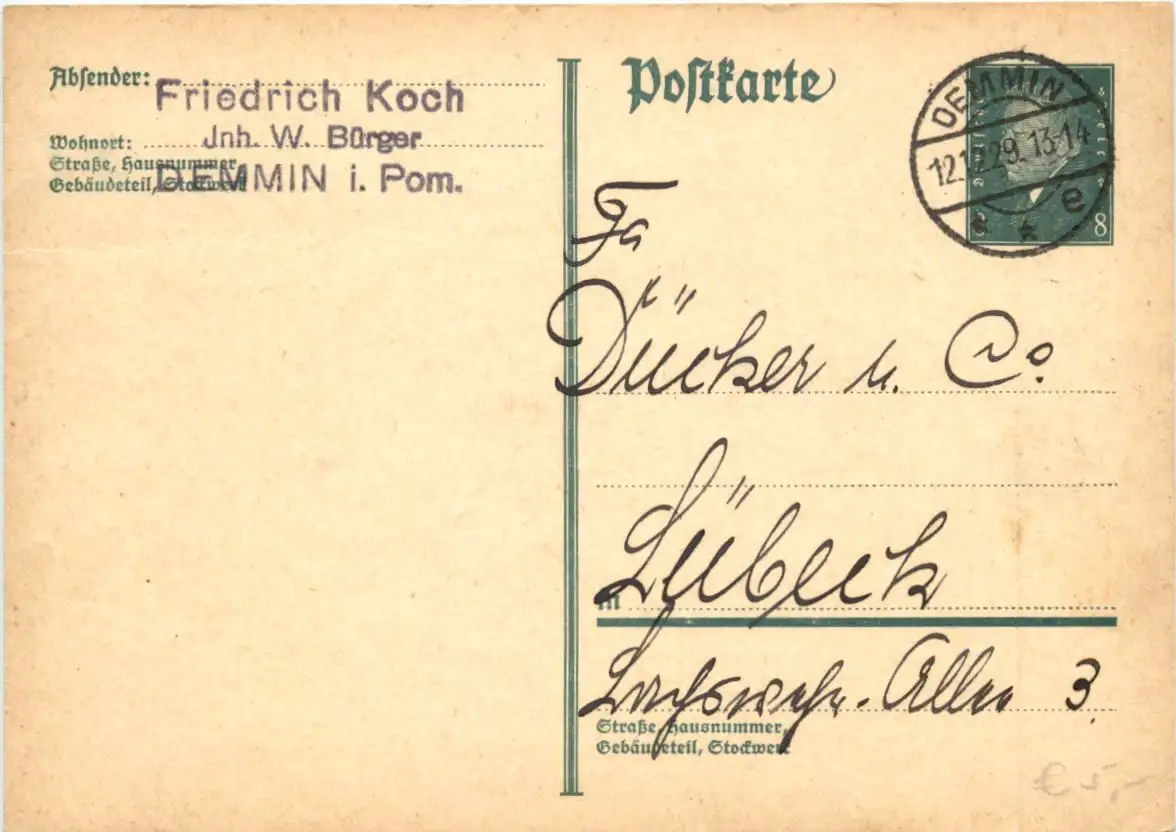 Absender:
Friedrich Koch
Wohnort:
Jnh. W. Bürger
Straße, Hausnummer,
Gebäudeteil, Stockwerk
DEMMIN i. Pom.
Postkarte
DEMMIN
12.12.29. 13-14
* * e
8
Fa
Dücker u. Co.
Lübeck
in
Lachswehr-Allee 3
Straße, Hausnummer,
Gebäudeteil, Stockwerk
€ 5,-